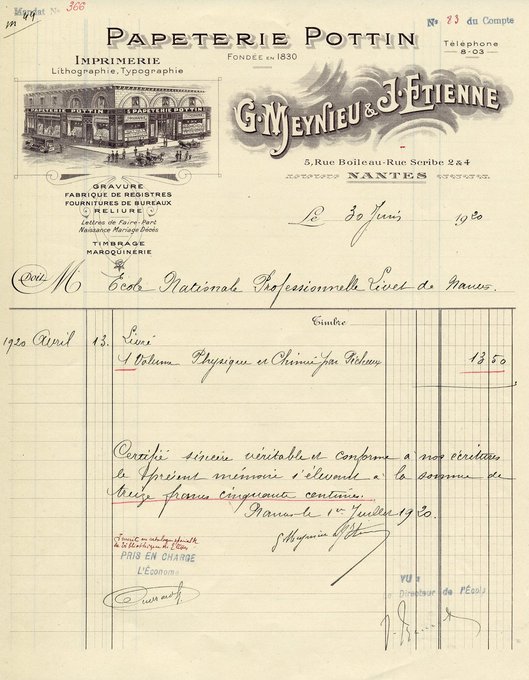 Mandat N° 366
m 49
N° 23 du Compte
PAPETERIE POTTIN
FONDÉE EN 1830
Téléphone
8-03
IMPRIMERIE
Lithographie, Typographie
PAPETERIE POTTIN
PAPETERIE POTTIN
G. MEYNIEU & J. ETIENNE
5, Rue Boileau-Rue Scribe 2 & 4
NANTES
GRAVURE
FABRIQUE DE REGISTRES
FOURNITURES DE BUREAUX
RELIURE
Lettres de Faire-Part
Naissance Mariage Décès
TIMBRAGE
MAROQUINERIE
Le 30 Juin 1920
Doit M Ecole Nationale Professionnelle Livet de Nantes.
Timbre
1920 Avril 13. Livré
1 Volume Physique et Chimie par Pécheux 13 50
Certifié sincère véritable et conforme à nos écritures
le présent mémoire s'élevant à la somme de
treize francs cinquante centimes.
Nantes le 1er Juillet 1920.
G Meynieu
Inscrit au catalogue général de
la bibliothèque
PRIS EN CHARGE
L'Économe
VU :
Le Directeur de l'École